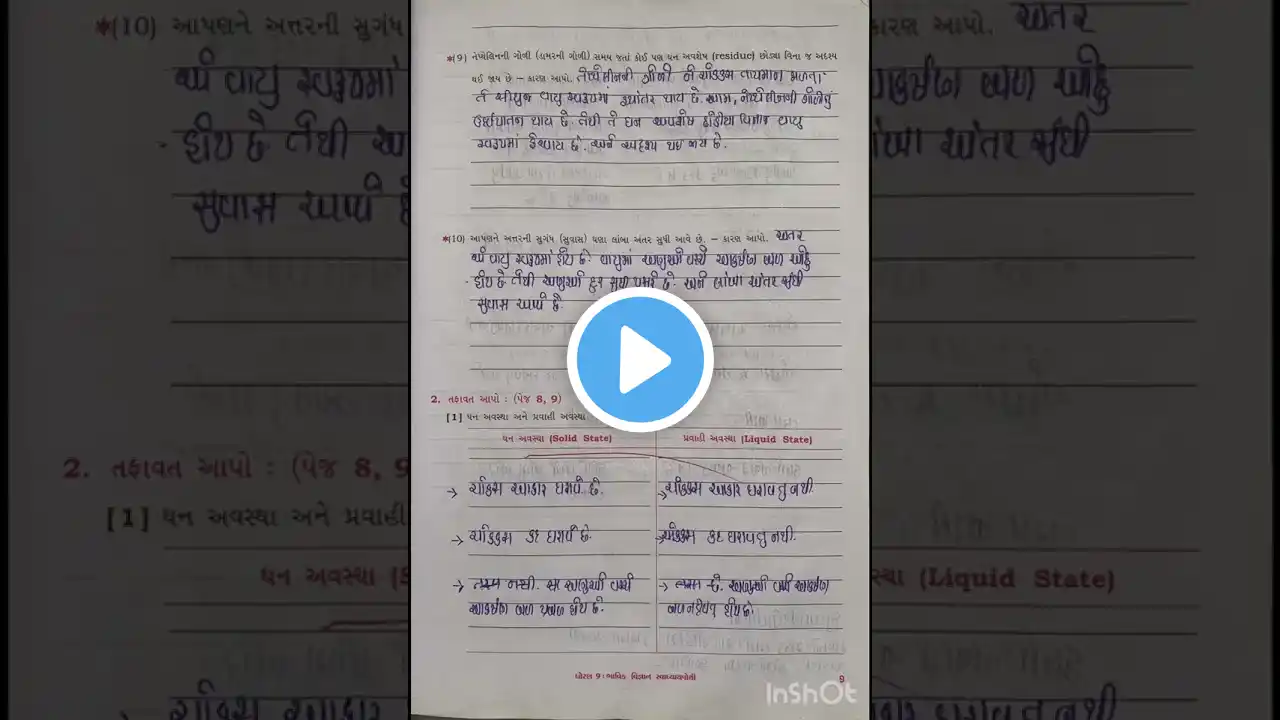 *(9) નેપ્થેલિનની ગોળી (ડામરની ગોળી) સમય જતાં કોઈ પણ ઘન અવશેષ (residue) છોડ્યા વિના જ અદૃશ્ય
થઈ જાય છે – કારણ આપો. નેપ્થેલીનની ગોળી ને ચોક્કસ તાપમાન મળતા
તે સીધુજ વાયુ સ્વરૂપમાં રૂપાંતર થાય છે. આમ, નેપ્થેલીનની ગોળીનું
ઉર્ધ્વપાતન થાય છે. તેથી તે ઘન અવશેષ છોડીયા વિનાજ વાયુ
સ્વરૂપમાં ફેરવાય છે. અને અદૃશ્ય થઇ જાય છે.
*(10) આપણને અત્તરની સુગંધ (સુવાસ) ઘણા લાંબા અંતર સુધી આવે છે. – કારણ આપો. અતર
એ વાયુ સ્વરૂપમાં હોય છે. વાયુમાં અણુઓ વચ્ચે આકર્ષણ બળ ઓછુ
હોય છે તેથી અણુઓ દુર સુધી પ્રસરે છે. અને લાંબા અંતર સુધી
સુવાસ આપે છે.
2. તફાવત આપો : (પેજ 8, 9)
[1] ઘન અવસ્થા અને પ્રવાહી અવસ્થા
ઘન અવસ્થા (Solid State) પ્રવાહી અવસ્થા (Liquid State)
→ ચોક્કસ આકાર ધરાવે છે. → ચોક્કસ આકાર ધરાવતુ નથી.
→ ચોક્કસ કદ ધરાવે છે. → ચોક્કસ કદ ધરાવતુ નથી.
→ નથી. અણુઓ વચ્ચે → છે. અણુઓ વચ્ચે આકર્ષણ
આકર્ષણ બળ પ્રબળ હોય છે. બળ હોય છે.
ધોરણ 9 : ભૌતિક વિજ્ઞાન સ્વાધ્યાયપોથી
9
InShOt